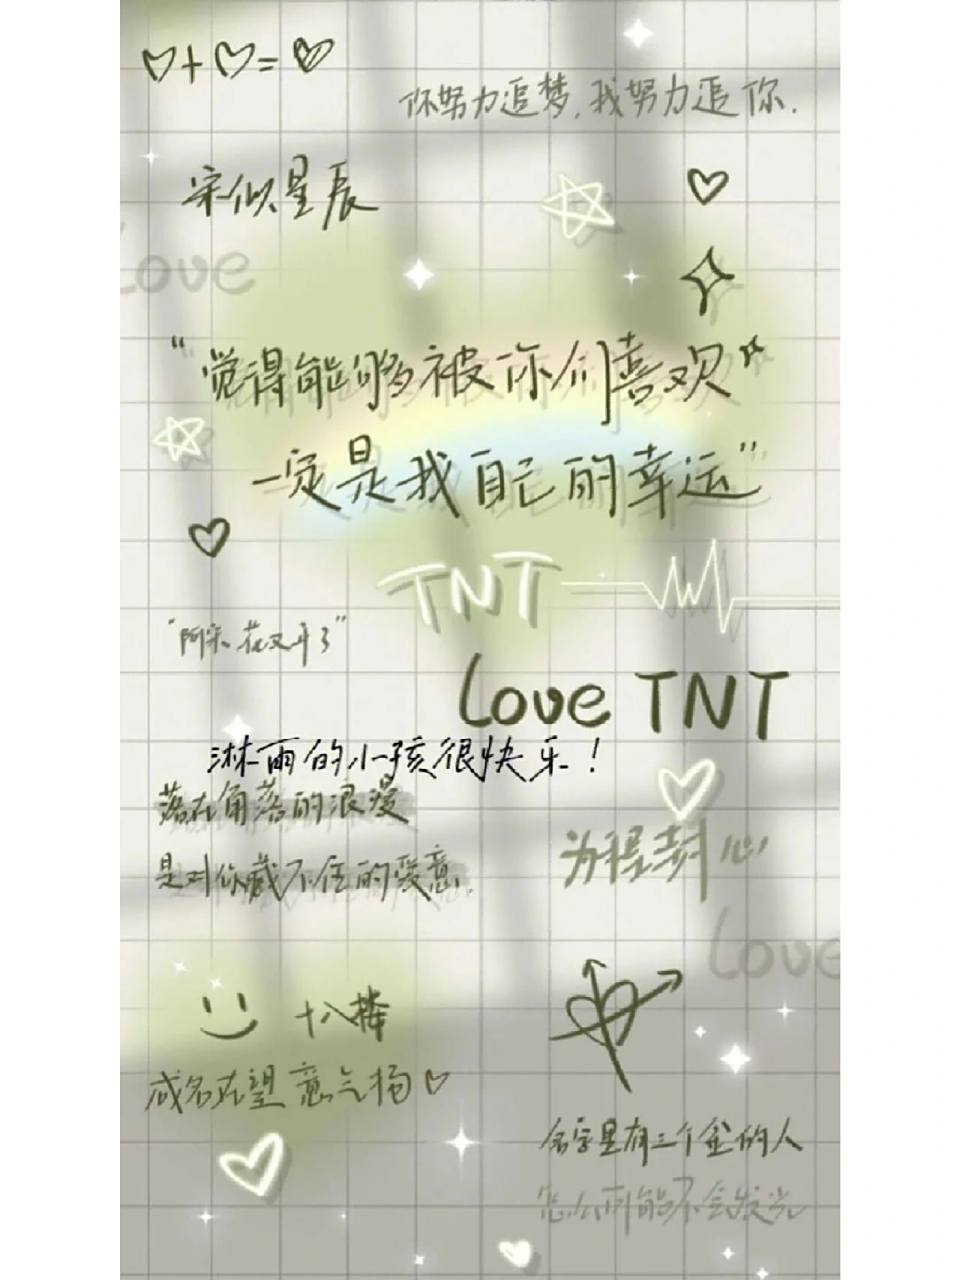 你努力追梦,我努力追你.
宋似星辰
Love
"觉得能够被你们喜欢"
一定是我自己的幸运"
TNT
"阿宋花又开了"
Love TNT
淋雨的小孩很快乐！
落在角落的浪漫
是对你藏不住的爱意.
为程封心
Love
十八楼
成名在望 意气扬
名字里有三个金的人
怎么可能不会发光